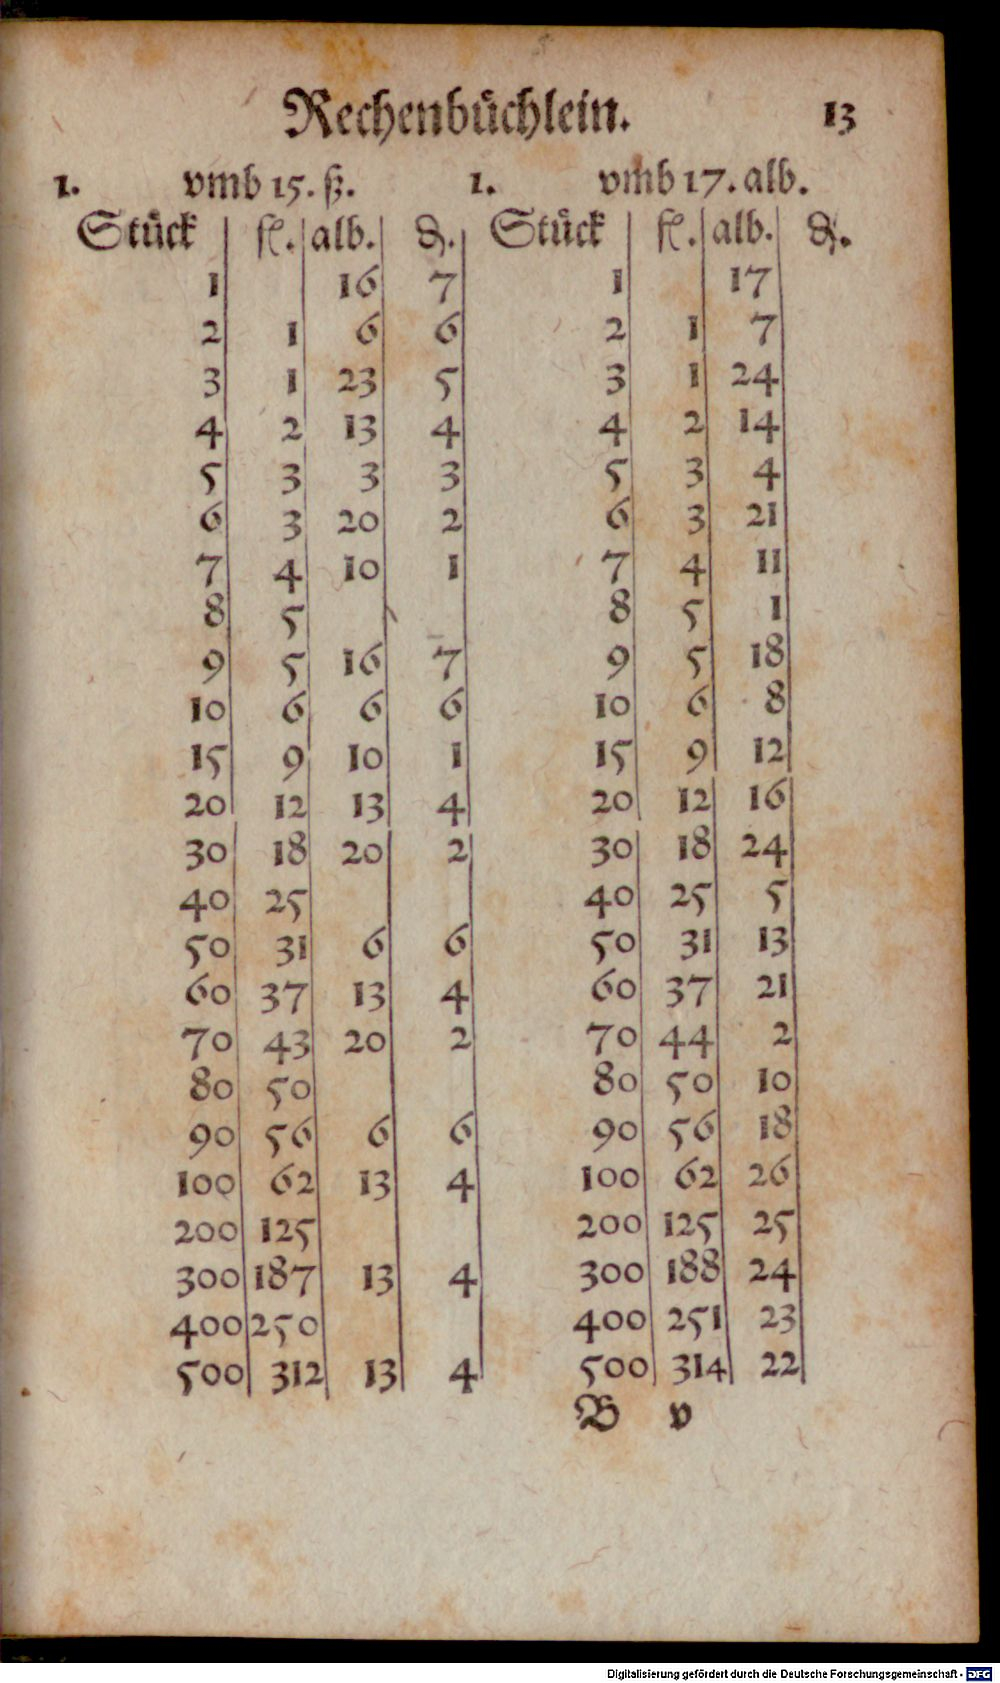 Rechenbuͤchlein. 13
1. vmb 15. ß. 1. vmb 17. alb.
Stuͤck fl. alb. ₰. Stuͤck fl. alb. ₰.
1 16 7 1 17
2 1 6 6 2 1 7
3 1 23 5 3 1 24
4 2 13 4 4 2 14
5 3 3 3 5 3 4
6 3 20 2 6 3 21
7 4 10 1 7 4 11
8 5 8 5 1
9 5 16 7 9 5 18
10 6 6 6 10 6 8
15 9 10 1 15 9 12
20 12 13 4 20 12 16
30 18 20 2 30 18 24
40 25 40 25 5
50 31 6 6 50 31 13
60 37 13 4 60 37 21
70 43 20 2 70 44 2
80 50 80 50 10
90 56 6 6 90 56 18
100 62 13 4 100 62 26
200 125 200 125 25
300 187 13 4 300 188 24
400 250 400 251 23
500 312 13 4 500 314 22
B v
Digitalisierung gefördert durch die Deutsche Forschungsgemeinschaft - DFG